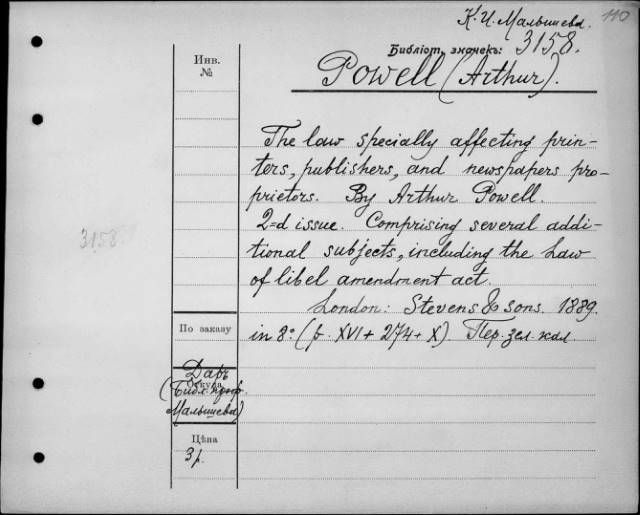 110
К. И. Малышева.
Библіот. значекъ: 3158.
Инв.
№
Powell (Arthur).
The law specially affecting prin-
ters, publishers, and newspapers pro-
prietors. By Arthur Powell.
2-d issue. Comprising several addi-
3158
tional subjects, including the Law
of libel amendment act.
London: Stevens & sons. 1889.
По заказу
in 8º (p. XVI + 274 + X). Пер. зел. кол.
Даръ
Откуда
(Библ. проф.
Малышева)
Цѣна
3 р.